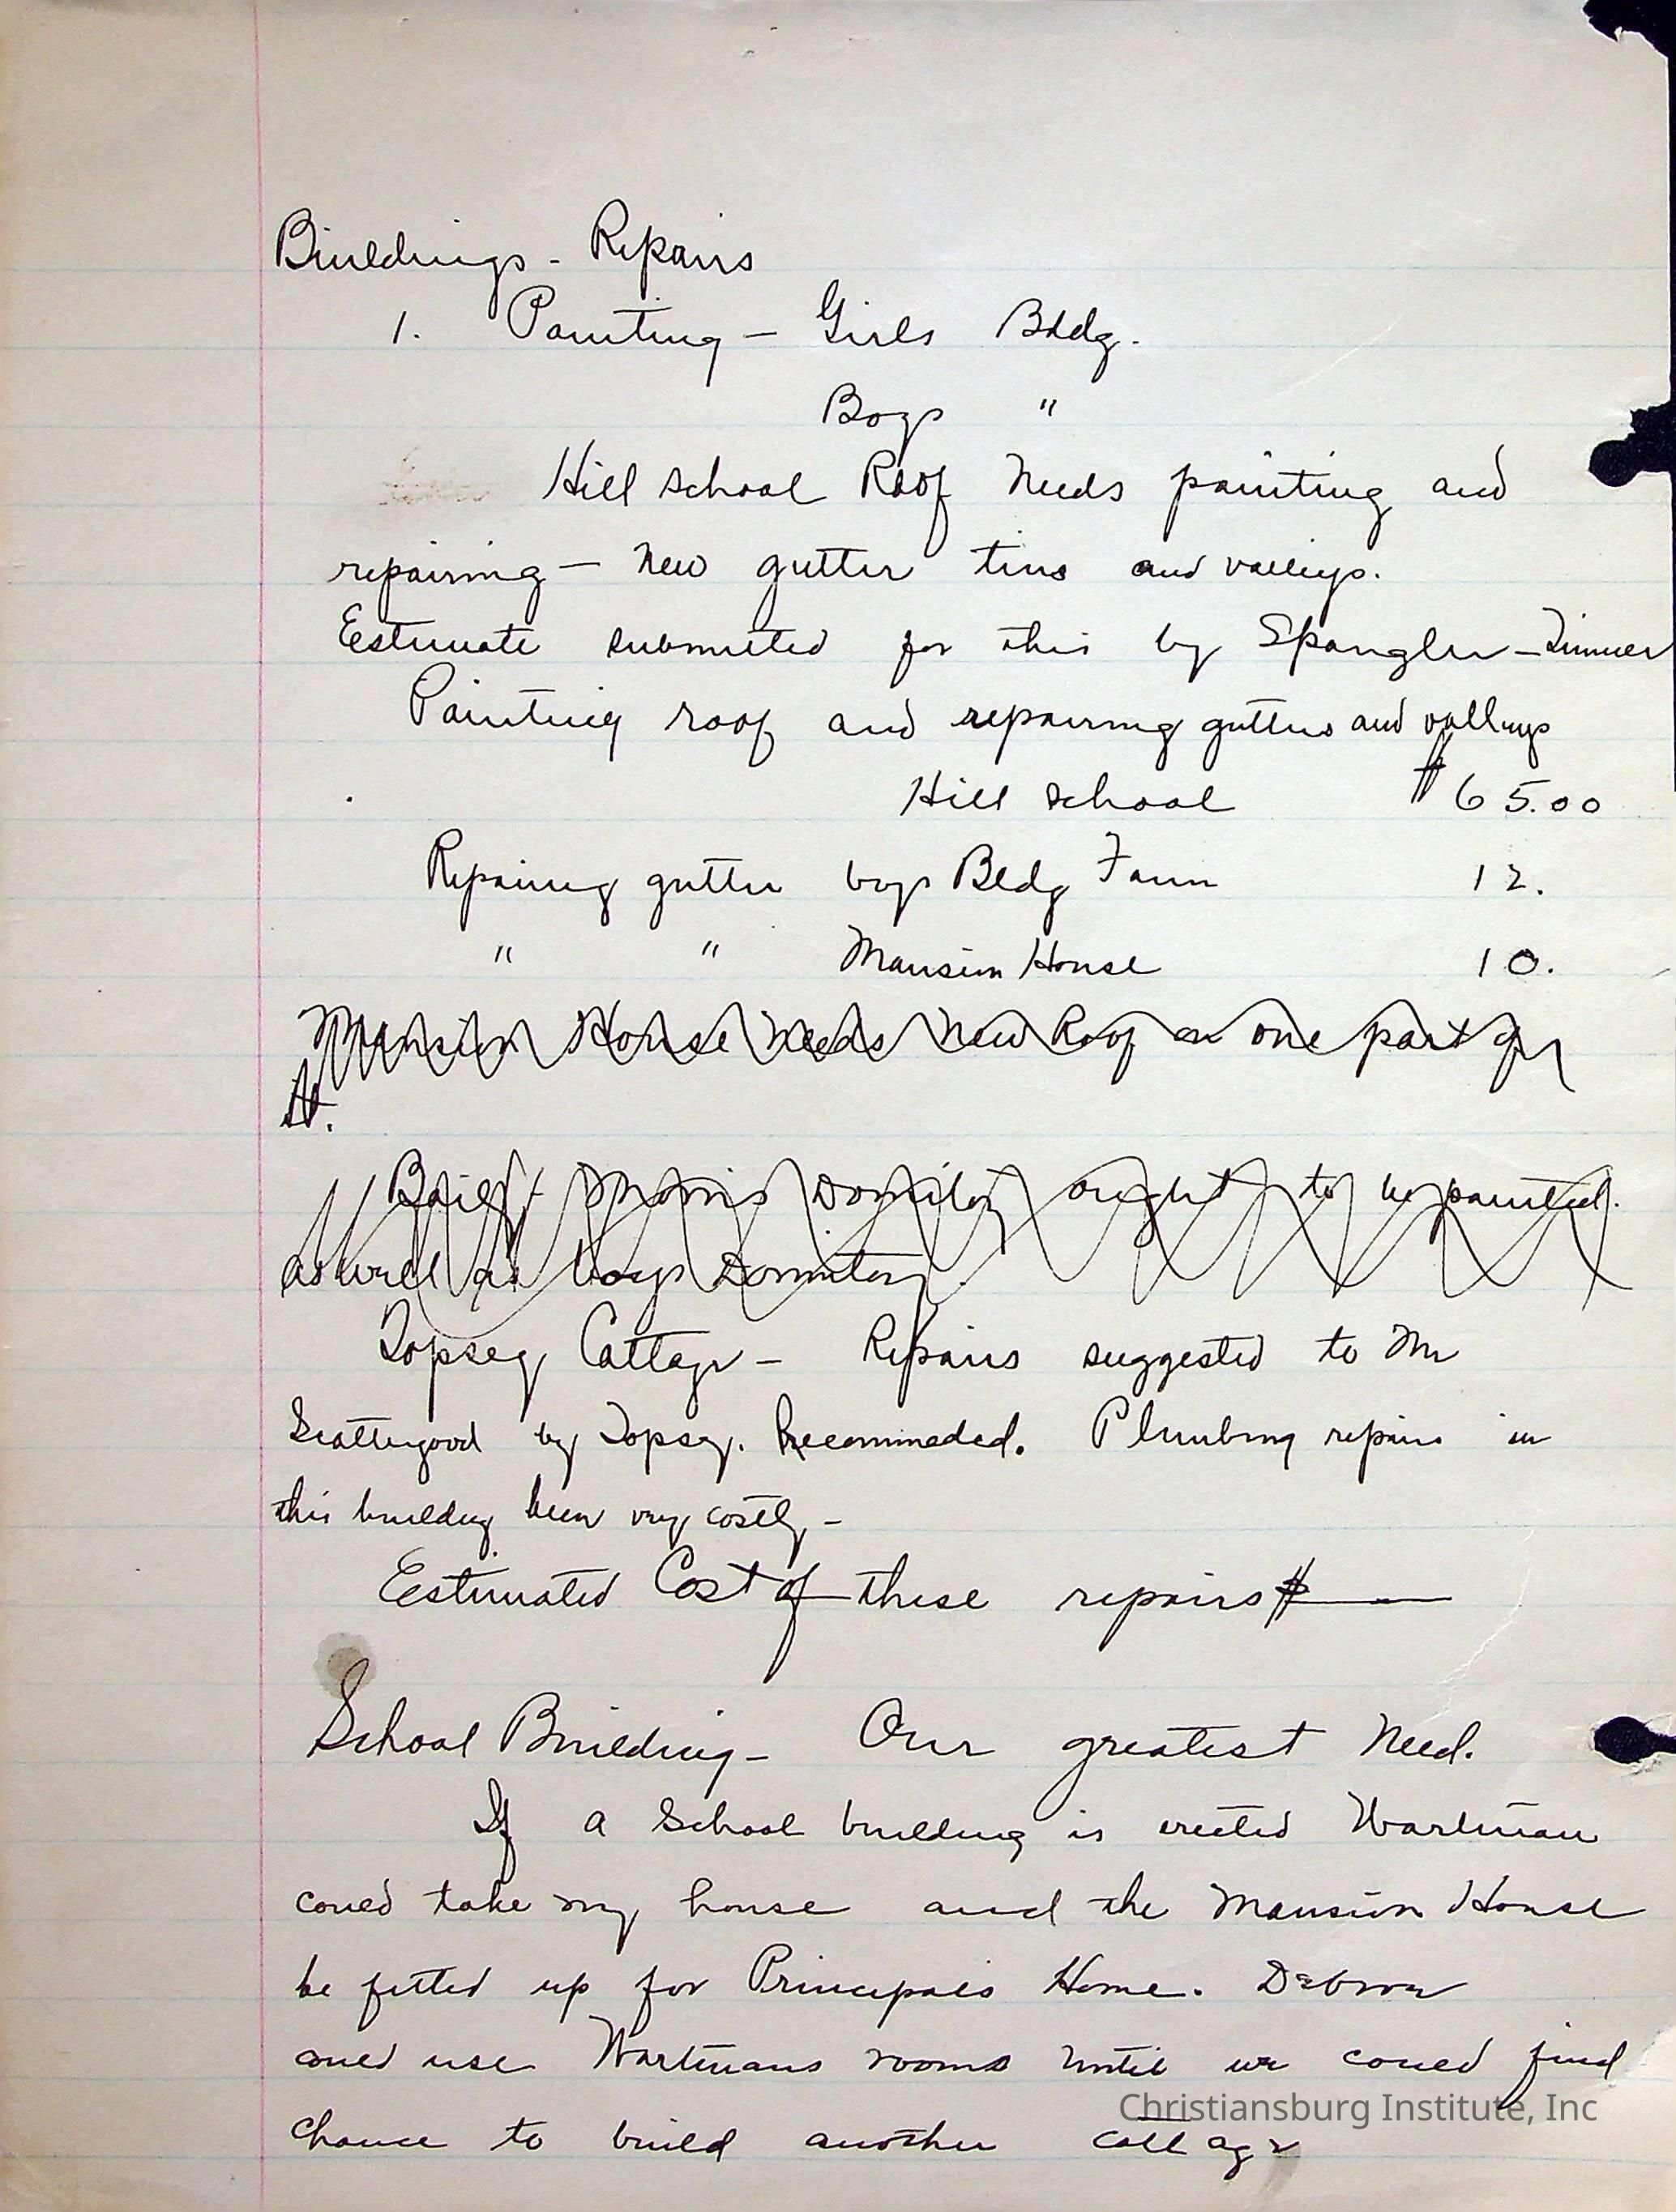 Buildings - Repairs
1. Painting - Girls Bldg.
Boys "
Hill school Roof needs painting and
repairing - new gutter tins and valleys.
Estimate submitted for this by Spangler-Zimmer
Painting roof and repairing gutters and valleys
Hill school $65.00
Repairing gutter boys Bldg Farm 12.
" " Mansion House 10.
Mansion House needs new Roof on one part of
it.
Morris Dormitory ought to be painted.
as well as boys Dormitory.
Cottage - Repairs suggested to Mr
Scattergood by Recommeded. Plumbing repairs in
this building been very costly -
Estimated Cost of these repairs $
School Building - Our greatest need.
If a School building is erected Wartman
could take my house and the Mansion House
be fitted up for Principals Home.
could use Wartmans rooms until we could find
chance to build another cottage
Christiansburg Institute, Inc